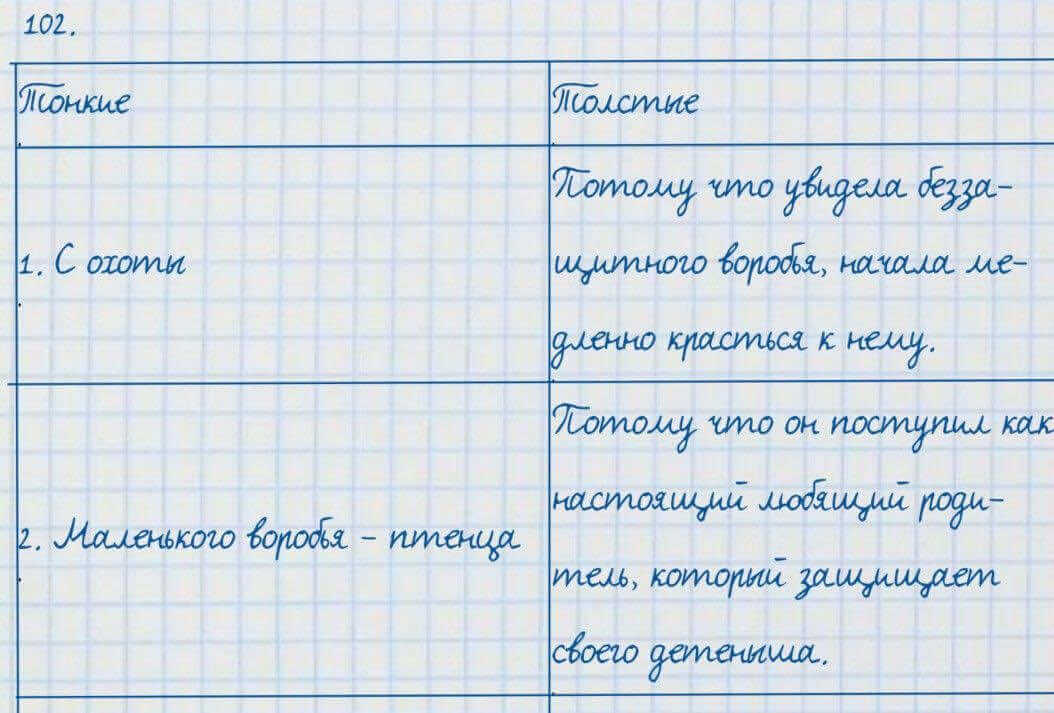 102.
Тонкие
Толстые
1. С охоты
Потому что увидела безза-
щитного воробья, начала ме-
дленно красться к нему.
2. Маленького воробья - птенца
Потому что он поступил как
настоящий любящий роди-
тель, который защищает
своего детеныша.